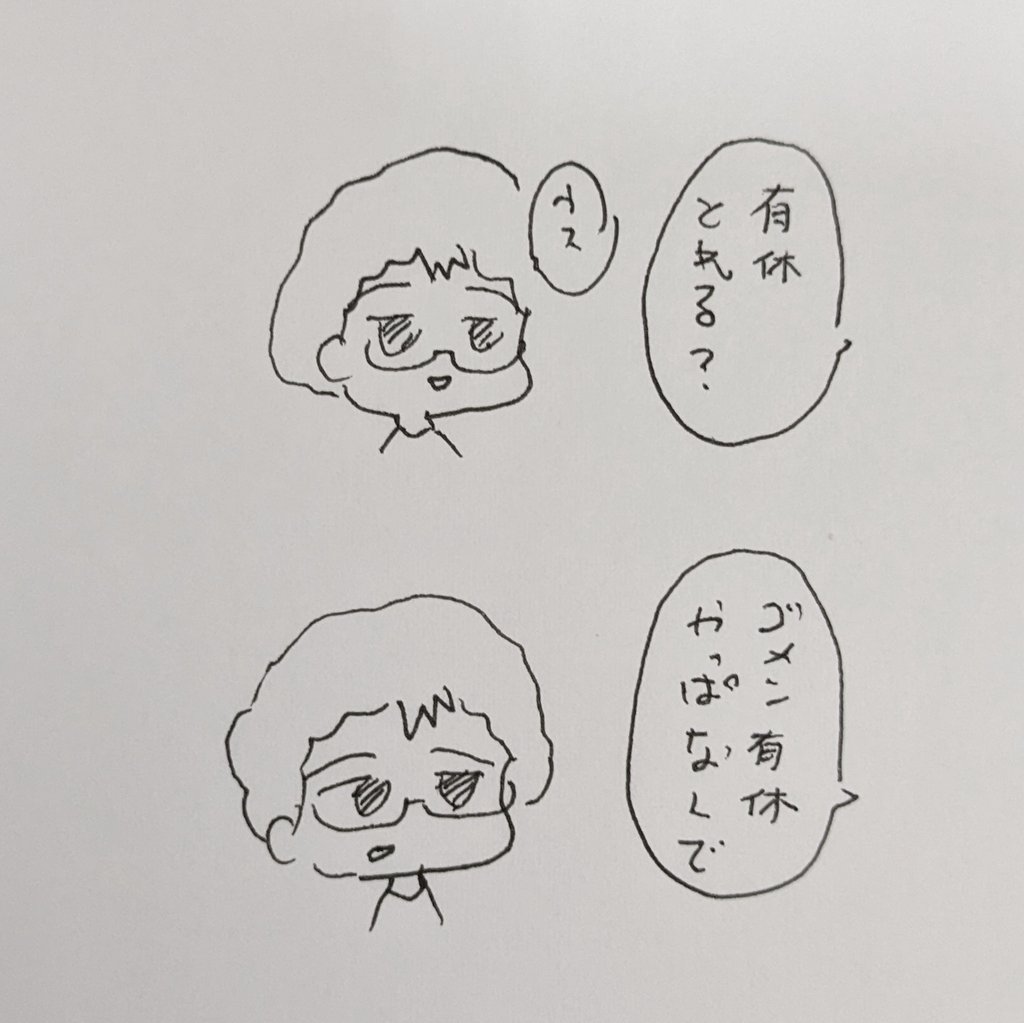 有休
とれる?
ウス
ゴメン有休
やっぱなくで